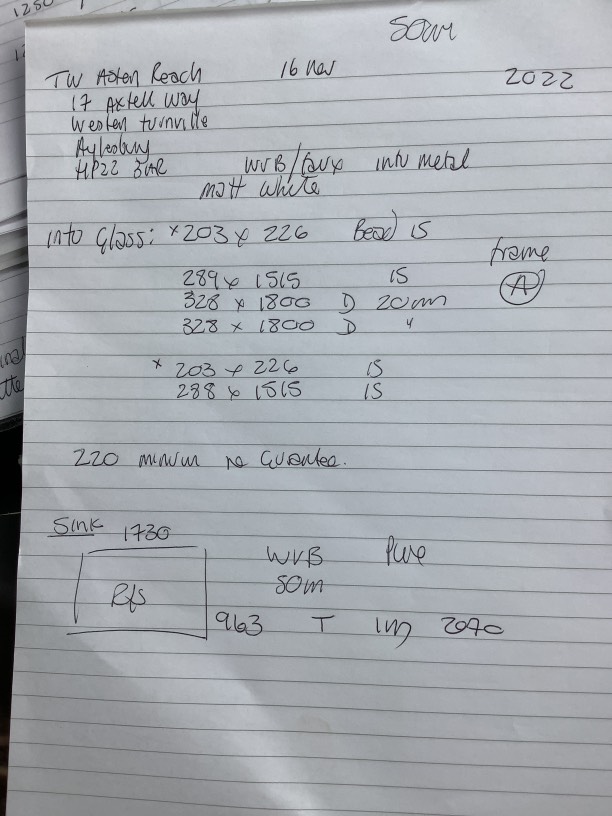 50m
TW Aston Reach 16 Nov 2022
17 Axtell Way
Weston turnville
Aylesbury
HP22
WVB/faux into metal
matt white
into Glass: x 203 x 226 Bead 15
frame
289 x 1515 15
A
328 x 1800 D 20mm
328 x 1800 D "
x 203 x 226 15
288 x 1515 15
220 minium no Guarantee.
Sink 1730
WVB Pure
50m
Rfs
963 T 2090
1250